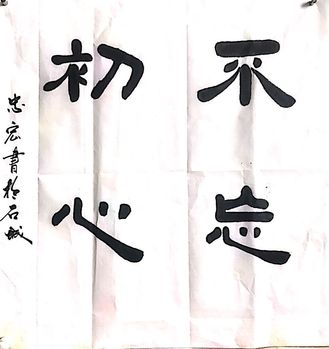 不忘
初心
忠宏書於石城